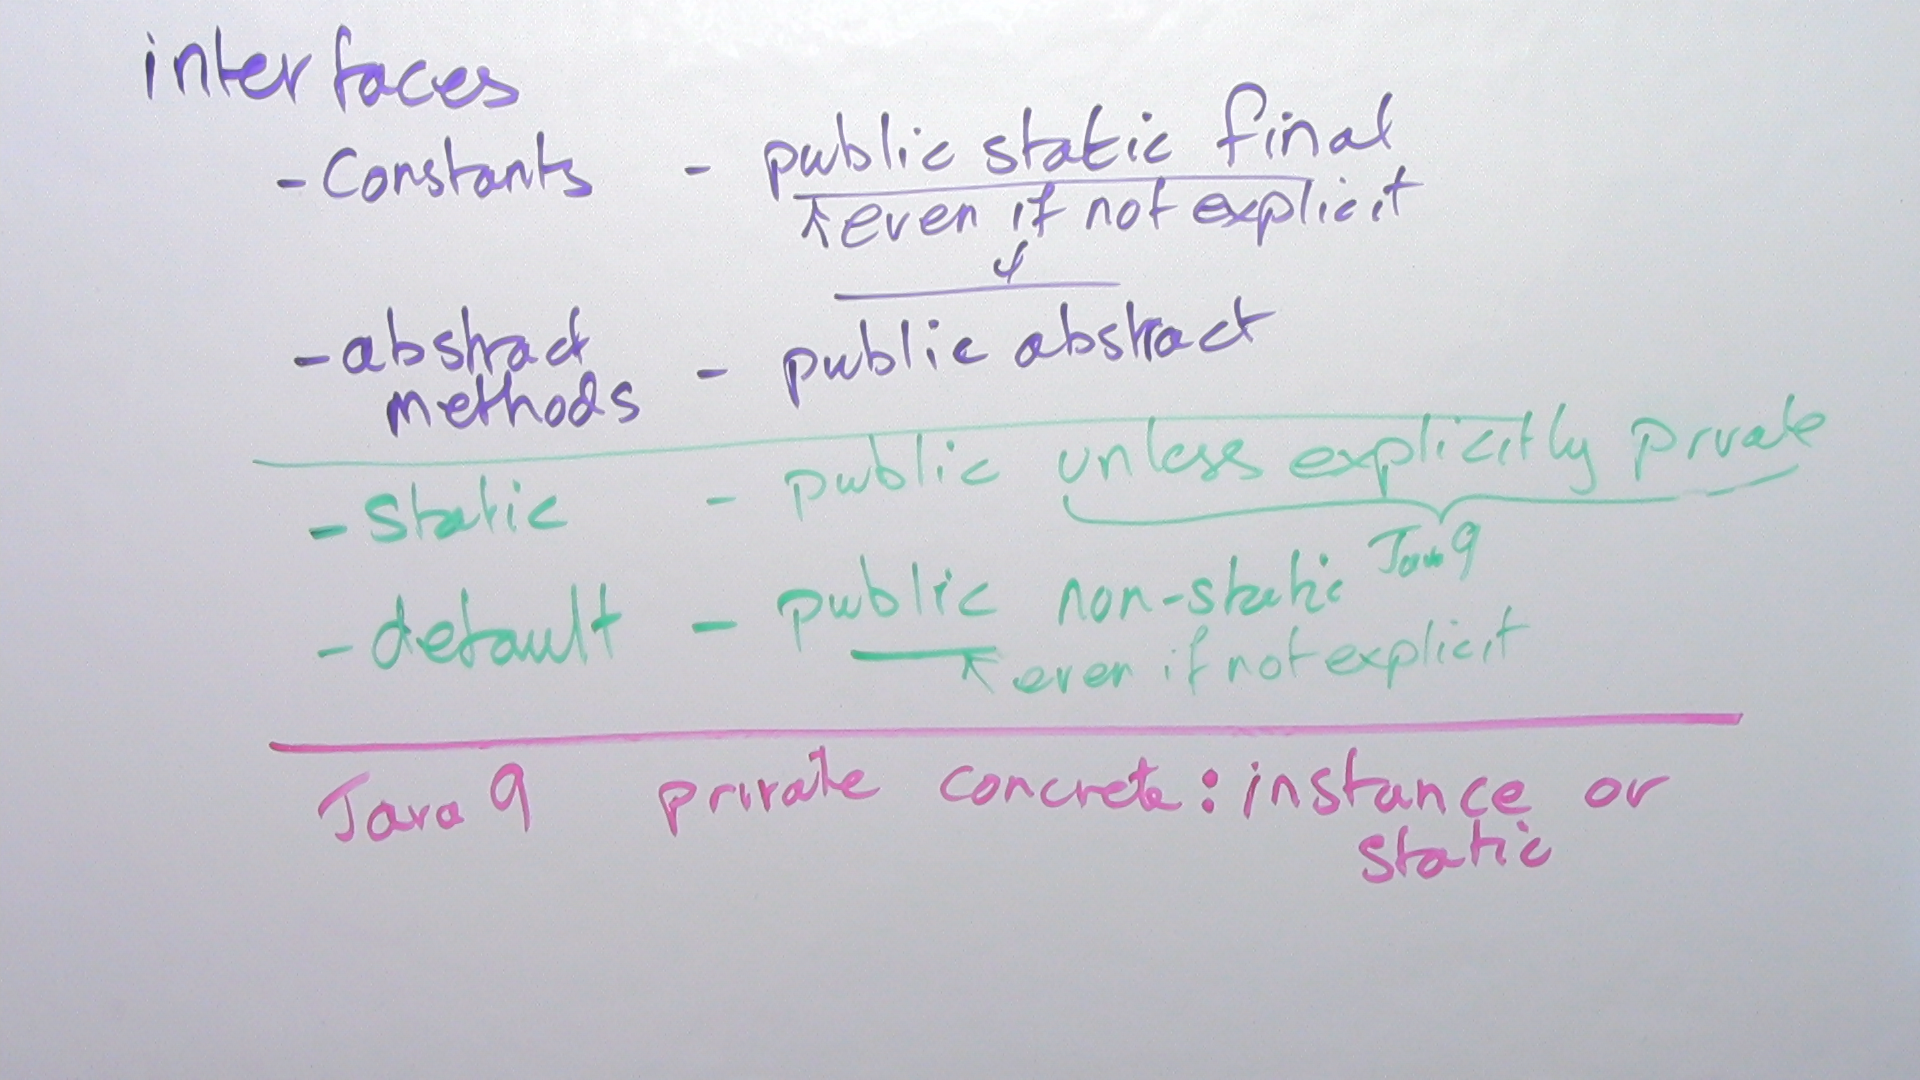 interfaces
- Constants - public static final
even if not explicit
- abstract methods - public abstract
- static - public unless explicitly private
Java 9
- default - public non-static
even if not explicit
Java 9 private concrete: instance or
static